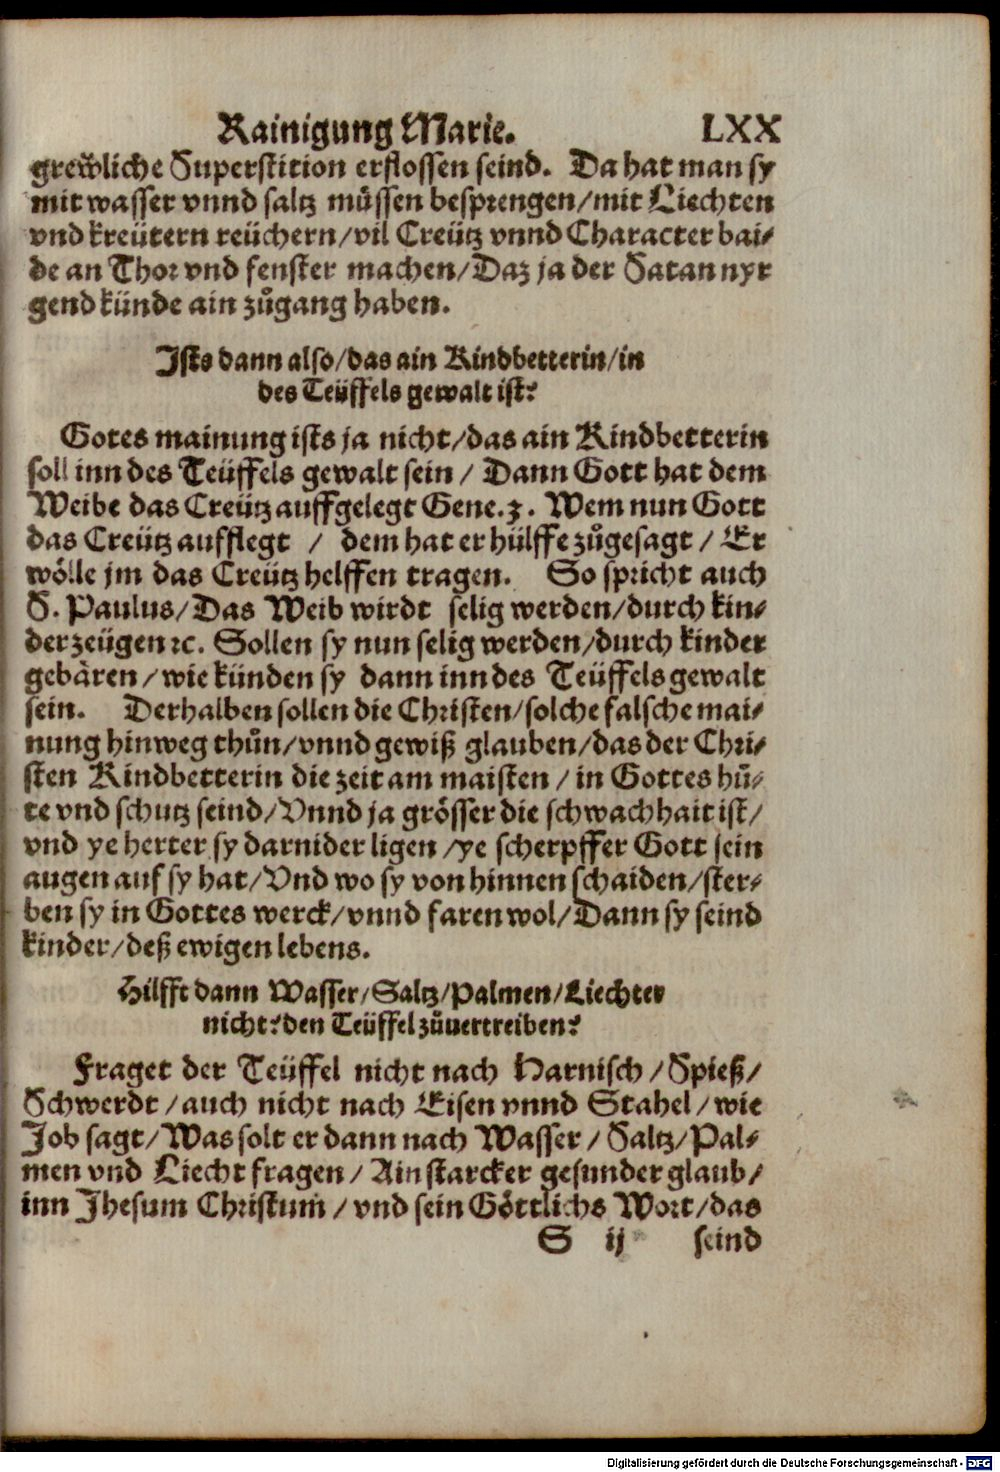 Rainigung Marie. LXX
grewliche Superstition erflossen seind. Da hat man sy
mit wasser vnnd saltz müssen besprengen/mit Liechten
vnd kreütern reüchern/vil Creütz vnnd Character bai-
de an Thor vnd fenster machen/Daz ja der Satan nyr
gend künde ain zůgang haben.
Ists dann also/das ain Kindbetterin/in
des Teüffels gewalt ist?
Gotes mainung ists ja nicht/das ain Kindbetterin
soll inn des Teüffels gewalt sein / Dann Gott hat dem
Weibe das Creütz auffgelegt Gene.3. Wem nun Gott
das Creütz aufflegt / dem hat er hülffe zůgesagt / Er
wölle jm das Creütz helffen tragen. So spricht auch
S. Paulus/Das Weib wirdt selig werden/durch kin-
der zeügen ꝛc. Sollen sy nun selig werden/durch kinder
gebären/wie künden sy dann inn des Teüffels gewalt
sein. Derhalben sollen die Christen/solche falsche mai-
nung hinweg thůn/vnnd gewiß glauben/das der Chri-
sten Kindbetterin die zeit am maisten / in Gottes hů-
te vnd schutz seind/Vnnd ja grösser die schwachhait ist/
vnd ye herter sy darnider ligen /ye scherpffer Gott sein
augen auf sy hat/Vnd wo sy von hinnen schaiden/ster-
ben sy in Gottes werck/vnnd faren wol/Dann sy seind
kinder/deß ewigen lebens.
Hilfft dann Wasser/Saltz/Palmen/Liechter
nicht? den Teüffel zůuertreiben?
Fraget der Teüffel nicht nach Harnisch /Spieß/
Schwerdt /auch nicht nach Eisen vnnd Stahel/wie
Job sagt/Was solt er dann nach Wasser / Saltz/Pal-
men vnd Liecht fragen / Ain starcker gesunder glaub/
inn Jhesum Christum / vnd sein Göttlichs Wort/das
S ij seind
Digitalisierung gefördert durch die Deutsche Forschungsgemeinschaft - DFG